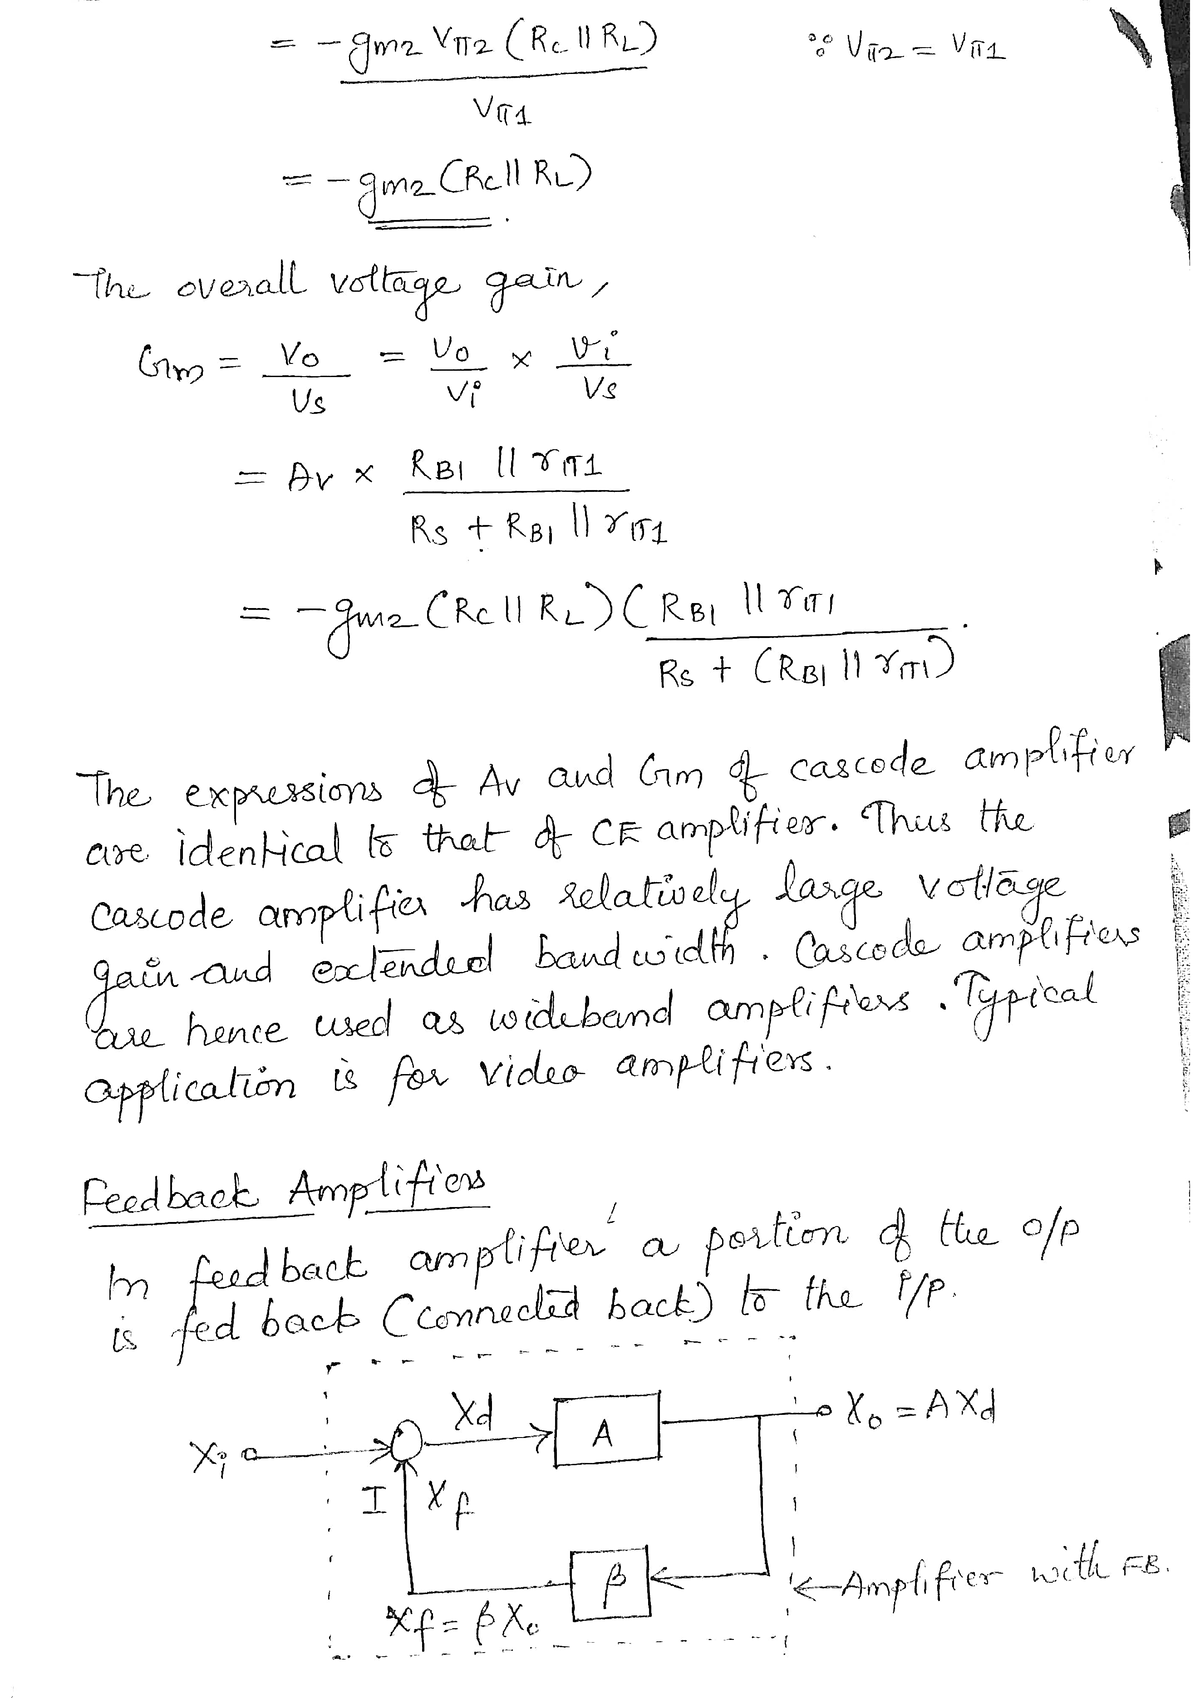 = -gm2 Vπ2 (Rc || RL) ∵ Vπ2 = Vπ1
Vπ1
= -gm2 (Rc || RL).
The overall voltage gain,
Gm = Vo / Vs = Vo / Vi × Vi / Vs
= Av × RB1 || rπ1
Rs + RB1 || rπ1
= -gm2 (Rc || RL) ( RB1 || rπ1
Rs + (RB1 || rπ1) .
The expressions of Av and Gm of cascode amplifier
are identical to that of CE amplifier. Thus the
cascode amplifier has relatively large voltage
gain and extended bandwidth. Cascode amplifiers
are hence used as wideband amplifiers. Typical
application is for video amplifiers.
Feedback Amplifiers
In feedback amplifier a portion of the o/p
is fed back (connected back) to the i/p.
Xd
A
Xo = AXd
Xi
I Xf
β
←Amplifier with FB.
Xf = βXo